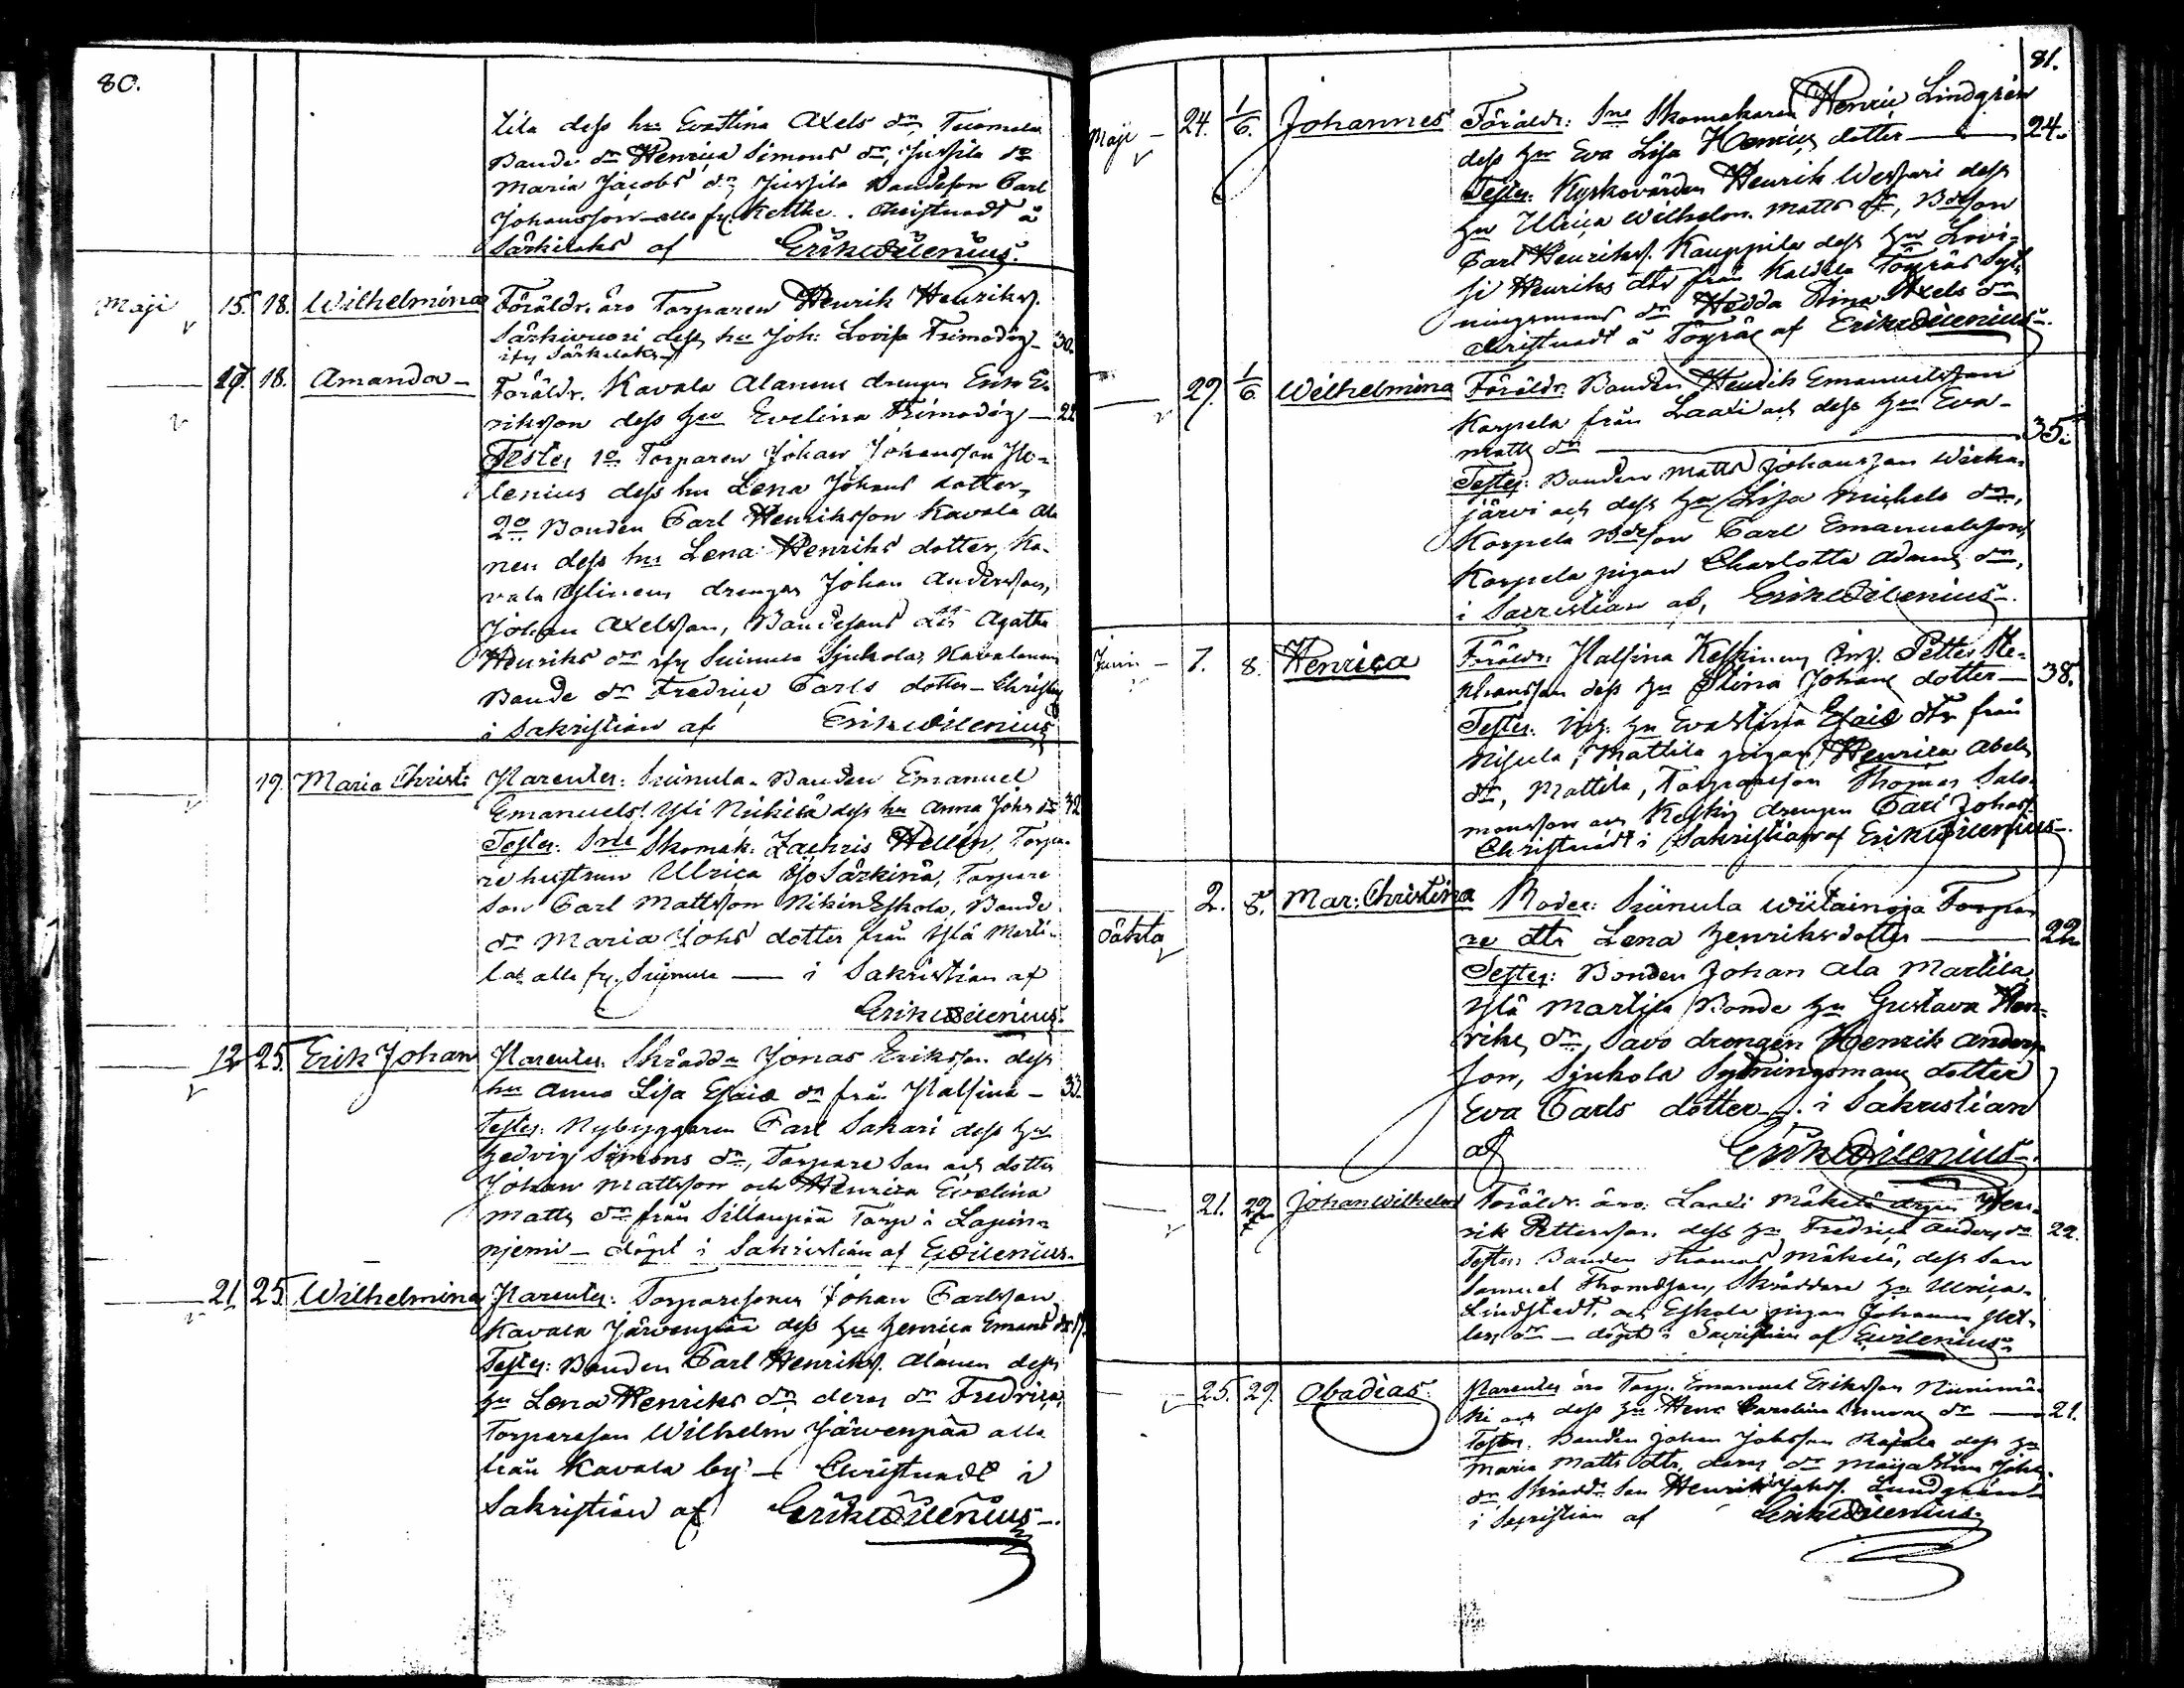 80.
tila dess hu Evastina Axels dr, Tuomela
Bonde dr Henrica Simons dr, Jussila dr
Maria Jacobs dr, Jussila Bondeson Carl
Johansson alla fr. Kerttu. Christnadt å
Särkilaks af Erik Wilenius.
Maji 15. 18. Wilhelmina Föräldr. äro Torparen Henrik Henriks.
Särkivuori dess hu Joh: Lovisa 30.
Särkilaks
18. Amanda Föräldr. Kavala Alanens drengen Erik E-
rikson dess hu Evelina 22
Testes 1o Torparen Johan Johansson
lenius dess hu Lena Johans dotter,
2o Bonden Carl Henriksson Kavala Ala
nen dess hu Lena Henriks dotter, Ka-
vala drengen Johan Andersson,
Johan Axelsson, Bondesons Agatha
Henriks dr Siinula Sjukola, Kavalanen
Bonde dr Fredrica Carls dotter - Christn
i Sakristian af Erik Wilenius
19. Maria Christ: Parentes: Siinula Bonden Emanuel
Emanuels. Yli Nikilä dess hu Anna Johs dr 32
Testes: Sne Skomak. Zachris Hellén, Torpa-
re hustrun Ulrica Yjo Särkinä, Torpare
son Carl Mattsson Nikin Eskola, Bonde
dr Maria Johs dotter från Ylä Marti-
la alla fr. Siinula — i Sakristian af
Erik Wilenius.
12 25. Erik Johan Parentes: Skräddn Jonas Eriksson dess
hu Anna Lisa Esaiæ dr från Palsina - 33.
Testes: Nybyggaren Carl Sakari dess hu
Hedvig Simons dr, Torpare son och dotter
Johan Mattsson och Henrica Evelina
Matts dr från Sillanpää Torp i Lapin-
niemi - döpt i Sakristian af E. Wilenius.
21 25. Wilhelmina Parentes: Torparesonen Johan Carlsson
Kavala Järvenpää dess hu Henrica Emans dr 19.
Testes: Bonden Carl Henriks. Alanen dess
hu Lena Henriks dr deras dr Fredrica,
Torpareson Wilhelm Järvenpää alla
från Kavala by — Christnadt i
Sakristian af Erik Wilenius.
81.
Maji 24. 1/6. Johannes Föräldr: Sne Skomakaren Henric Lindgrén
dess hu Eva Lisa Henrics dotter — 24.
Testes: Kyrkovärden Henrik Wessari dess
hu Ulrica Wilhelm. Matts dr, Bdeson
Carl Henriks. Kauppila dess hu Lovi-
Henriks dtr från Kaldela Töyräs Syt-
ningsmans dr Hedda Stina Axels dr
Christnadt å Töyräs af Erik Wilenius.
29. 1/6. Wilhelmina Föräldr: Bonden Henrik Emanuelsson
Korpela från Laavi och dess hu Eva
Matts dr — 35.
Testes: Bonden Matts Johansson Wirka-
järvi och dess hu Lisa Michels dr,
Korpela Bdeson Carl Emanuelsson,
Korpela pigan Charlotta Adams dr,
i Sacristian af, Erik Wilenius.
Junii 7. 8. Henrica Föräldr: Palsina Keskinens Petter He-
dess hu Stina Johans dotter — 38.
Testes: hu Evastina Esaiæ dtr från
Nisula, Mattila pigan Henrica Abels
dr, Mattila, Torpareson Thomas Salo-
monsson och Keskis drengen Carl Johans.
Christnadt i Sakristian af Erik Wilenius.
2. 8. Mar: Christina Moder: Siinula Wiitainoja Torpa-
Oäkta re dtr Lena Henriksdotter — 22
Testes: Bonden Johan Ala Martila
Ylä Martila Bonde hu Gustava Hen-
riks dr, Savo drengen Henrik Anders-
son, Sjukola Sytningsmans dotter
Eva Carls dotter. i Sakristian
af Erik Wilenius.
21. 22. Johan Wilhelm Föräldr. äro: Laavi Mäkelä drgen Hen-
rik Pettersson dess hu Fredrica Anders dr 22.
Testes: Bonden Thomas Mäkelä, dess son
Samuel Thomasson, Skräddare hu Ulrica
Lindstedt, och Eskola pigan Johanna
dr — döpt i Sacristian af E Wilenius.
25. 29. Obadias. Parentes äro Torp. Emanuel Eriksson Niinimä-
ki och dess hu Carolina dr — 21.
Testes: Bonden Johan Jakobsson dess hu
Maria Matts dtr, deras dr Maja Stina Johs
dr, Skrädd. son Henrik Lundgren
i Sacristian af Erik Wilenius.